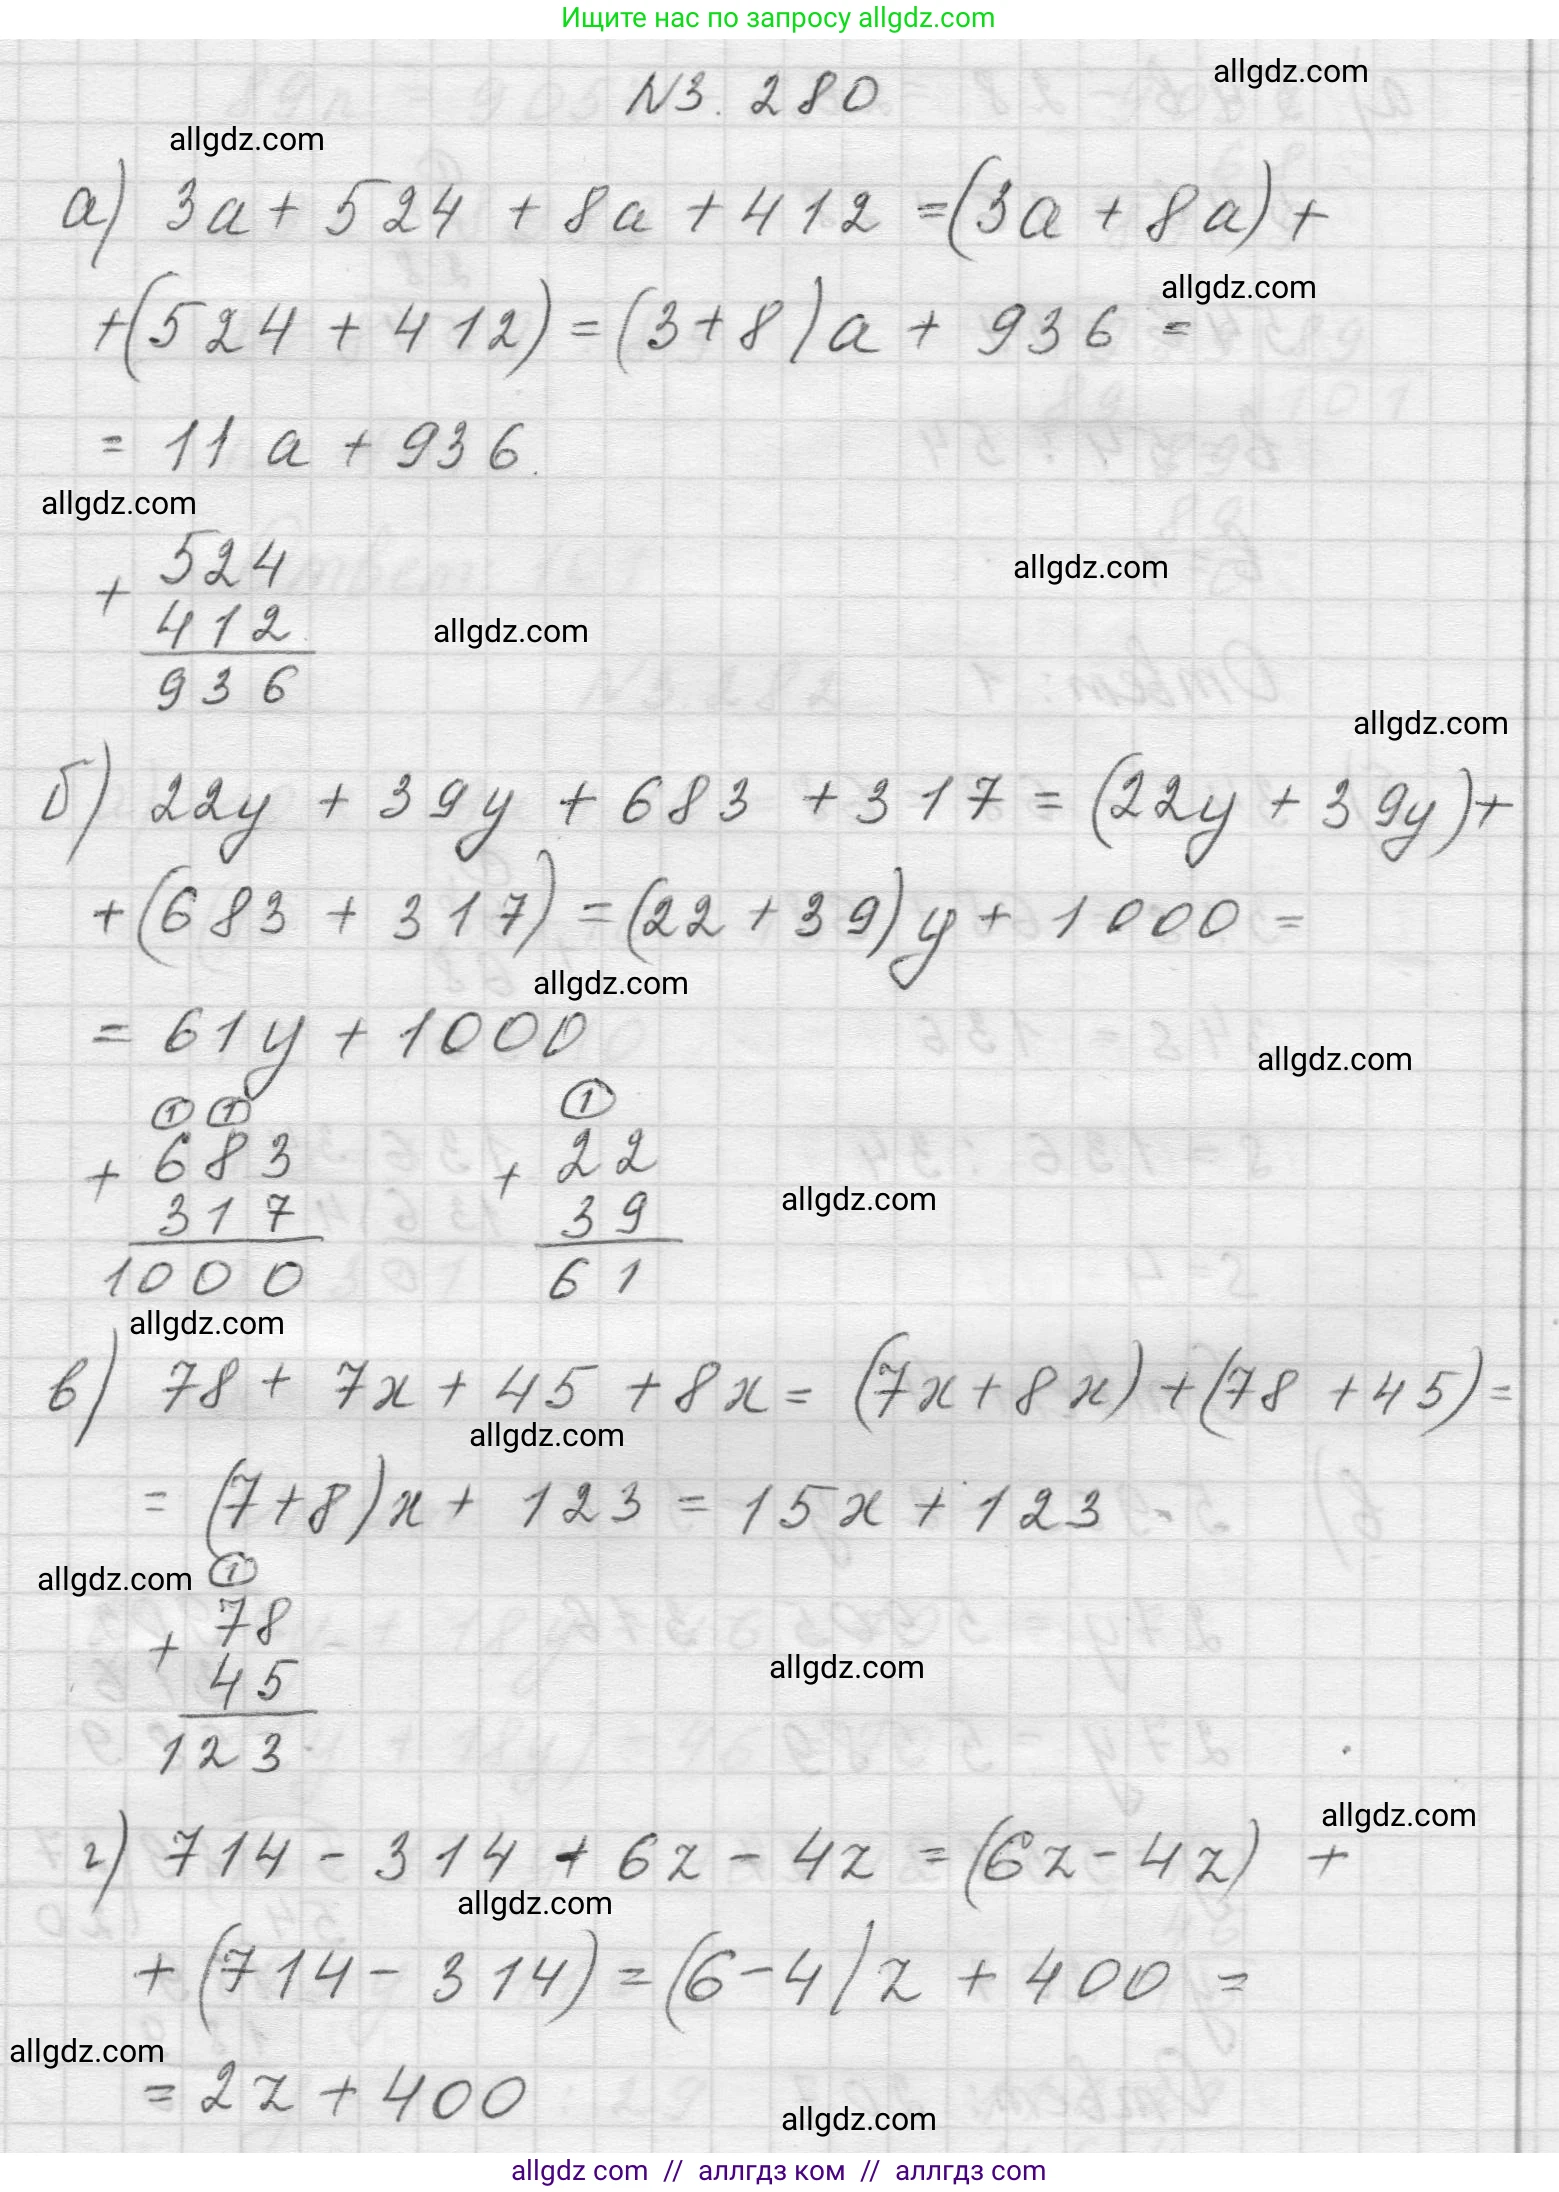 Ищите нас по запросу allgdz.com
allgdz.com
№3.280
allgdz.com
а) 3a + 524 + 8a + 412 = (3a + 8a) +
allgdz.com
+ (524 + 412) = (3 + 8)a + 936 =
= 11a + 936.
allgdz.com
524
allgdz.com
+
412
allgdz.com
936
allgdz.com
б) 22y + 39y + 683 + 317 = (22y + 39y) +
+ (683 + 317) = (22 + 39)y + 1000 =
allgdz.com
= 61y + 1000
allgdz.com
1 1 1
683 22
+ +
allgdz.com
317 39
1000 61
allgdz.com
в) 78 + 7x + 45 + 8x = (7x + 8x) + (78 + 45) =
allgdz.com
= (7 + 8)x + 123 = 15x + 123.
allgdz.com
1
78
+
allgdz.com
45
123
allgdz.com
г) 714 - 314 + 6z - 4z = (6z - 4z) +
allgdz.com
+ (714 - 314) = (6 - 4)z + 400 =
allgdz.com
= 2z + 400
allgdz.com
allgdz com // аллгдз ком // аллгдз com